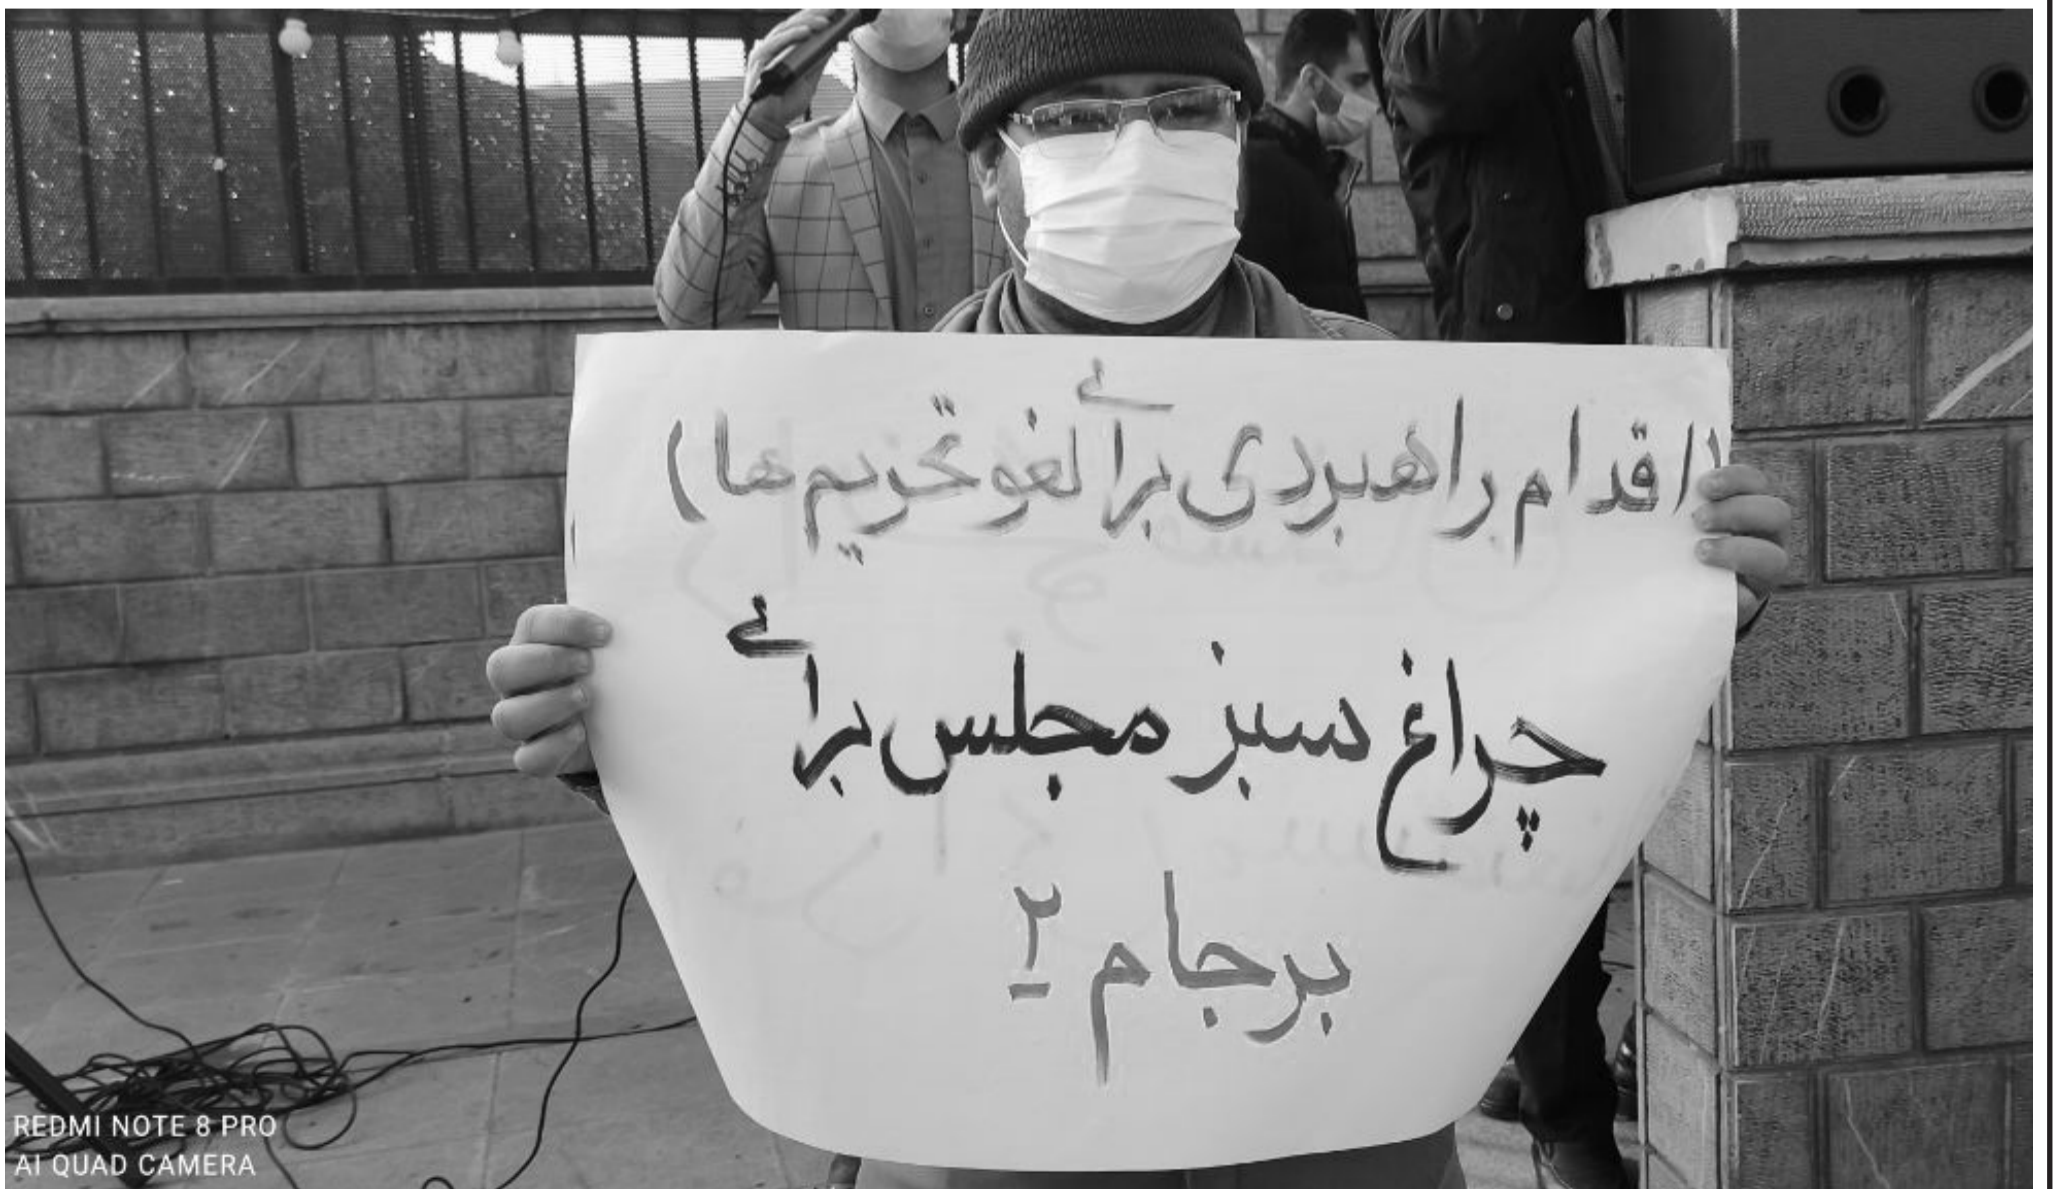 (اقدام راهبردی برای لغو تحریم ها)
چراغ سبز مجلس برای
برجام ۲
REDMI NOTE 8 PRO
AI QUAD CAMERA